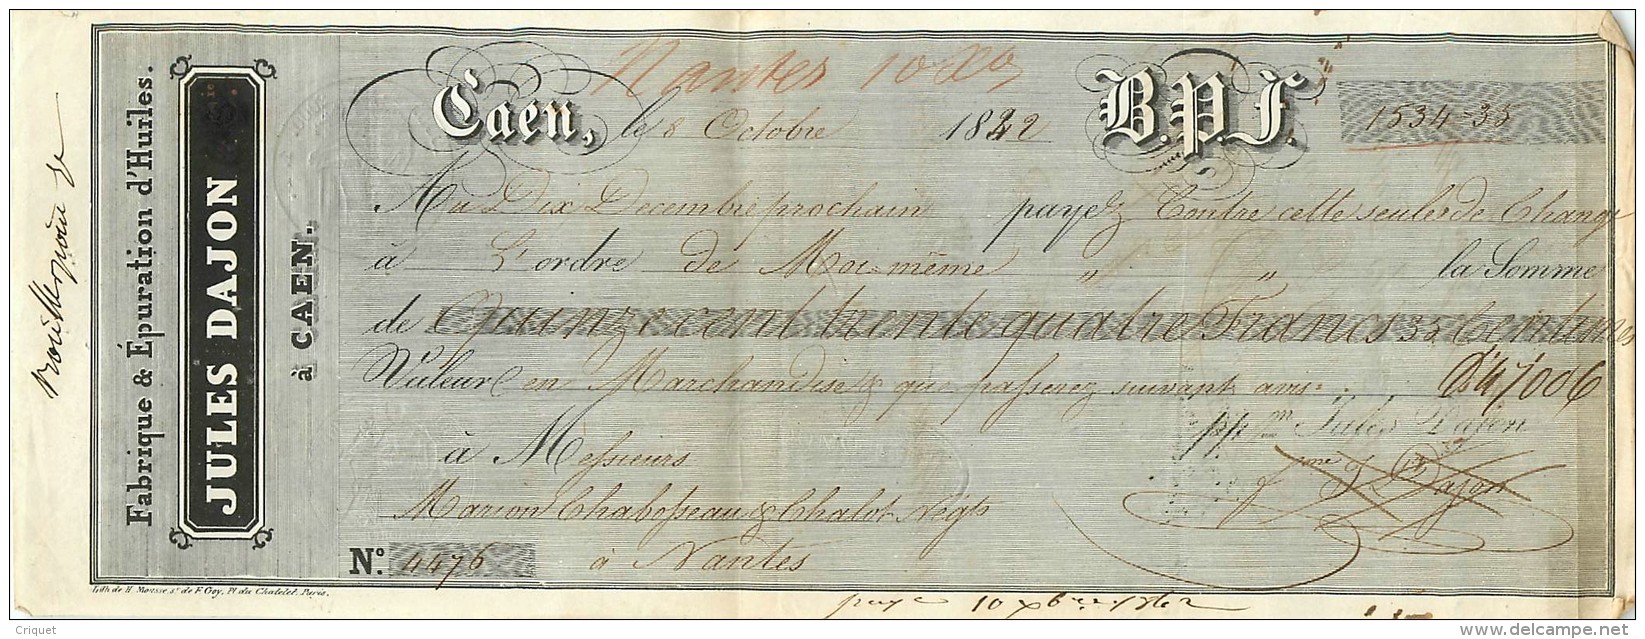 Nantes 10 Xbre
Caen, le 8 Octobre 1842 B.P.F. 1534-35
Au Dix Decembre prochain payez Contre cette seule de Change
à L'ordre de Moi-même " " la Somme
de Quinze cent trente quatre Francs 35 Centimes
Valeur en Marchandises que passerez suivant avis
à Messieurs
pp on Jules Dajon
Marion Chabosseau & Chalot Négts
à Nantes
me J Dajon
No. 4476
Fabrique & Épuration d'Huiles.
JULES DAJON
à CAEN.
Lith de H. Mousse, sr de F. Goy, Pl du Chatelet, Paris.
payé 10 Xbre 1842
Criquet
delcampe.net